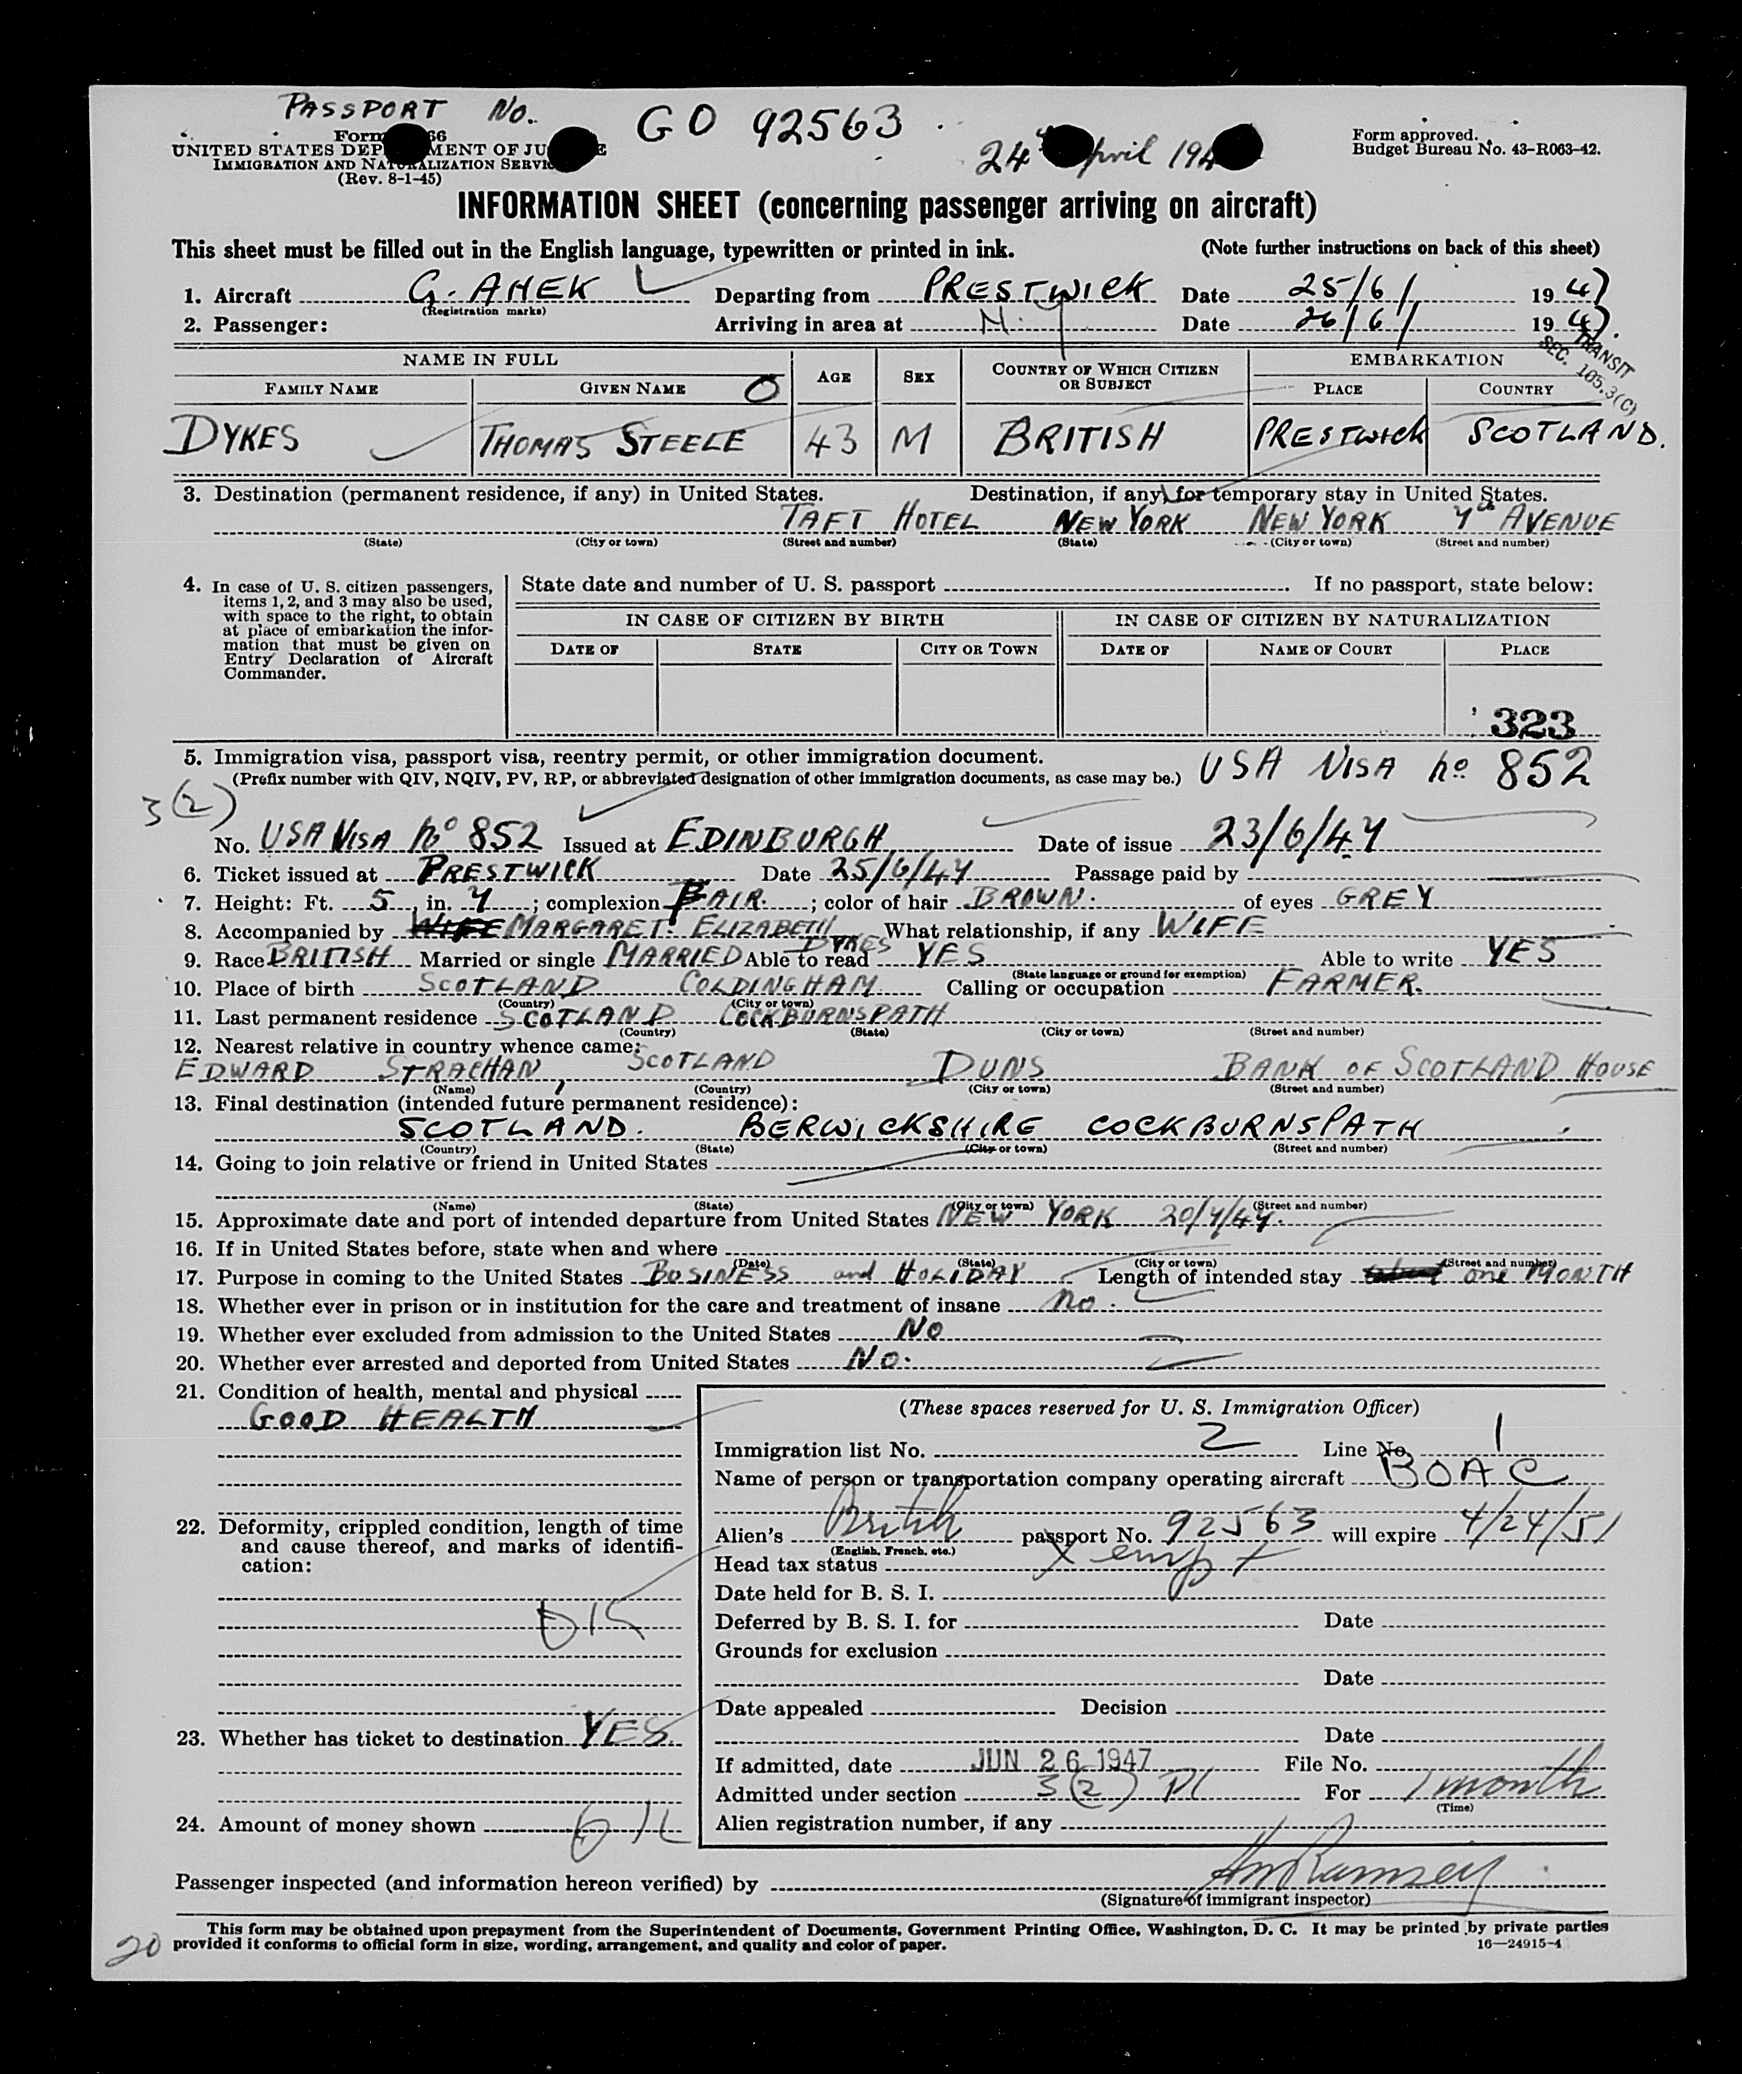 PASSPORT No. GO 92563
24th April 194
Form 66
UNITED STATES DEP MENT OF JU E
IMMIGRATION AND NATURALIZATION SERVI
(Rev. 8-1-45)
Form approved.
Budget Bureau No. 43-R063-42.
INFORMATION SHEET (concerning passenger arriving on aircraft)
This sheet must be filled out in the English language, typewritten or printed in ink. (Note further instructions on back of this sheet)
1. Aircraft G. AHEK Departing from PRESTWICK Date 25/6/ 1947
(Registration marks)
2. Passenger: Arriving in area at N.Y Date 26/6/ 1947.
TRANSIT
SEC. 105.3(C)
NAME IN FULL AGE SEX COUNTRY OF WHICH CITIZEN OR SUBJECT EMBARKATION
FAMILY NAME GIVEN NAME O PLACE COUNTRY
DYKES THOMAS STEELE 43 M BRITISH PRESTWICK SCOTLAND.
3. Destination (permanent residence, if any) in United States. Destination, if any, for temporary stay in United States.
TAFT HOTEL NEW YORK NEW YORK 7th AVENUE
(State) (City or town) (Street and number) (State) (City or town) (Street and number)
4. In case of U. S. citizen passengers,
items 1, 2, and 3 may also be used,
with space to the right, to obtain
at place of embarkation the infor-
mation that must be given on
Entry Declaration of Aircraft
Commander.
State date and number of U. S. passport . If no passport, state below:
IN CASE OF CITIZEN BY BIRTH IN CASE OF CITIZEN BY NATURALIZATION
DATE OF STATE CITY OR TOWN DATE OF NAME OF COURT PLACE
323
5. Immigration visa, passport visa, reentry permit, or other immigration document.
(Prefix number with QIV, NQIV, PV, RP, or abbreviated designation of other immigration documents, as case may be.) USA VISA No 852
3(2)
No. USA VISA No 852 Issued at EDINBURGH Date of issue 23/6/47
6. Ticket issued at PRESTWICK Date 25/6/47 Passage paid by
7. Height: Ft. 5, in. 7; complexion FAIR.; color of hair BROWN. of eyes GREY
8. Accompanied by WIFE MARGARET ELIZABETH DYKES What relationship, if any WIFE
9. Race BRITISH Married or single MARRIED Able to read YES Able to write YES
(State language or ground for exemption)
10. Place of birth SCOTLAND COLDINGHAM Calling or occupation FARMER.
(Country) (City or town)
11. Last permanent residence SCOTLAND COCKBURNSPATH
(Country) (State) (City or town) (Street and number)
12. Nearest relative in country whence came:
EDWARD STRACHAN, SCOTLAND DUNS BANK OF SCOTLAND HOUSE
(Name) (Country) (City or town) (Street and number)
13. Final destination (intended future permanent residence):
SCOTLAND. BERWICKSHIRE COCKBURNSPATH
(Country) (State) (City or town) (Street and number)
14. Going to join relative or friend in United States
(Name) (State) (City or town) (Street and number)
15. Approximate date and port of intended departure from United States NEW YORK 20/7/47.
16. If in United States before, state when and where
(Date) (State) (City or town) (Street and number)
17. Purpose in coming to the United States BUSINESS and HOLIDAY Length of intended stay one MONTH
18. Whether ever in prison or in institution for the care and treatment of insane no.
19. Whether ever excluded from admission to the United States NO
20. Whether ever arrested and deported from United States NO.
21. Condition of health, mental and physical
GOOD HEALTH
22. Deformity, crippled condition, length of time
and cause thereof, and marks of identifi-
cation:
OK
23. Whether has ticket to destination YES.
24. Amount of money shown OK
(These spaces reserved for U. S. Immigration Officer)
Immigration list No. 2 Line No. 1
Name of person or transportation company operating aircraft BOAC
Alien's British passport No. 92563 will expire 4/24/51
(English, French, etc.)
Head tax status xempt
Date held for B. S. I.
Deferred by B. S. I. for Date
Grounds for exclusion
Date
Date appealed Decision
Date
If admitted, date JUN 26 1947 File No.
Admitted under section 3(2) For 1 month
(Time)
Alien registration number, if any
Passenger inspected (and information hereon verified) by Ramsey
(Signature of immigrant inspector)
This form may be obtained upon prepayment from the Superintendent of Documents, Government Printing Office, Washington, D. C. It may be printed by private parties
provided it conforms to official form in size, wording, arrangement, and quality and color of paper. 16—24915-4
20